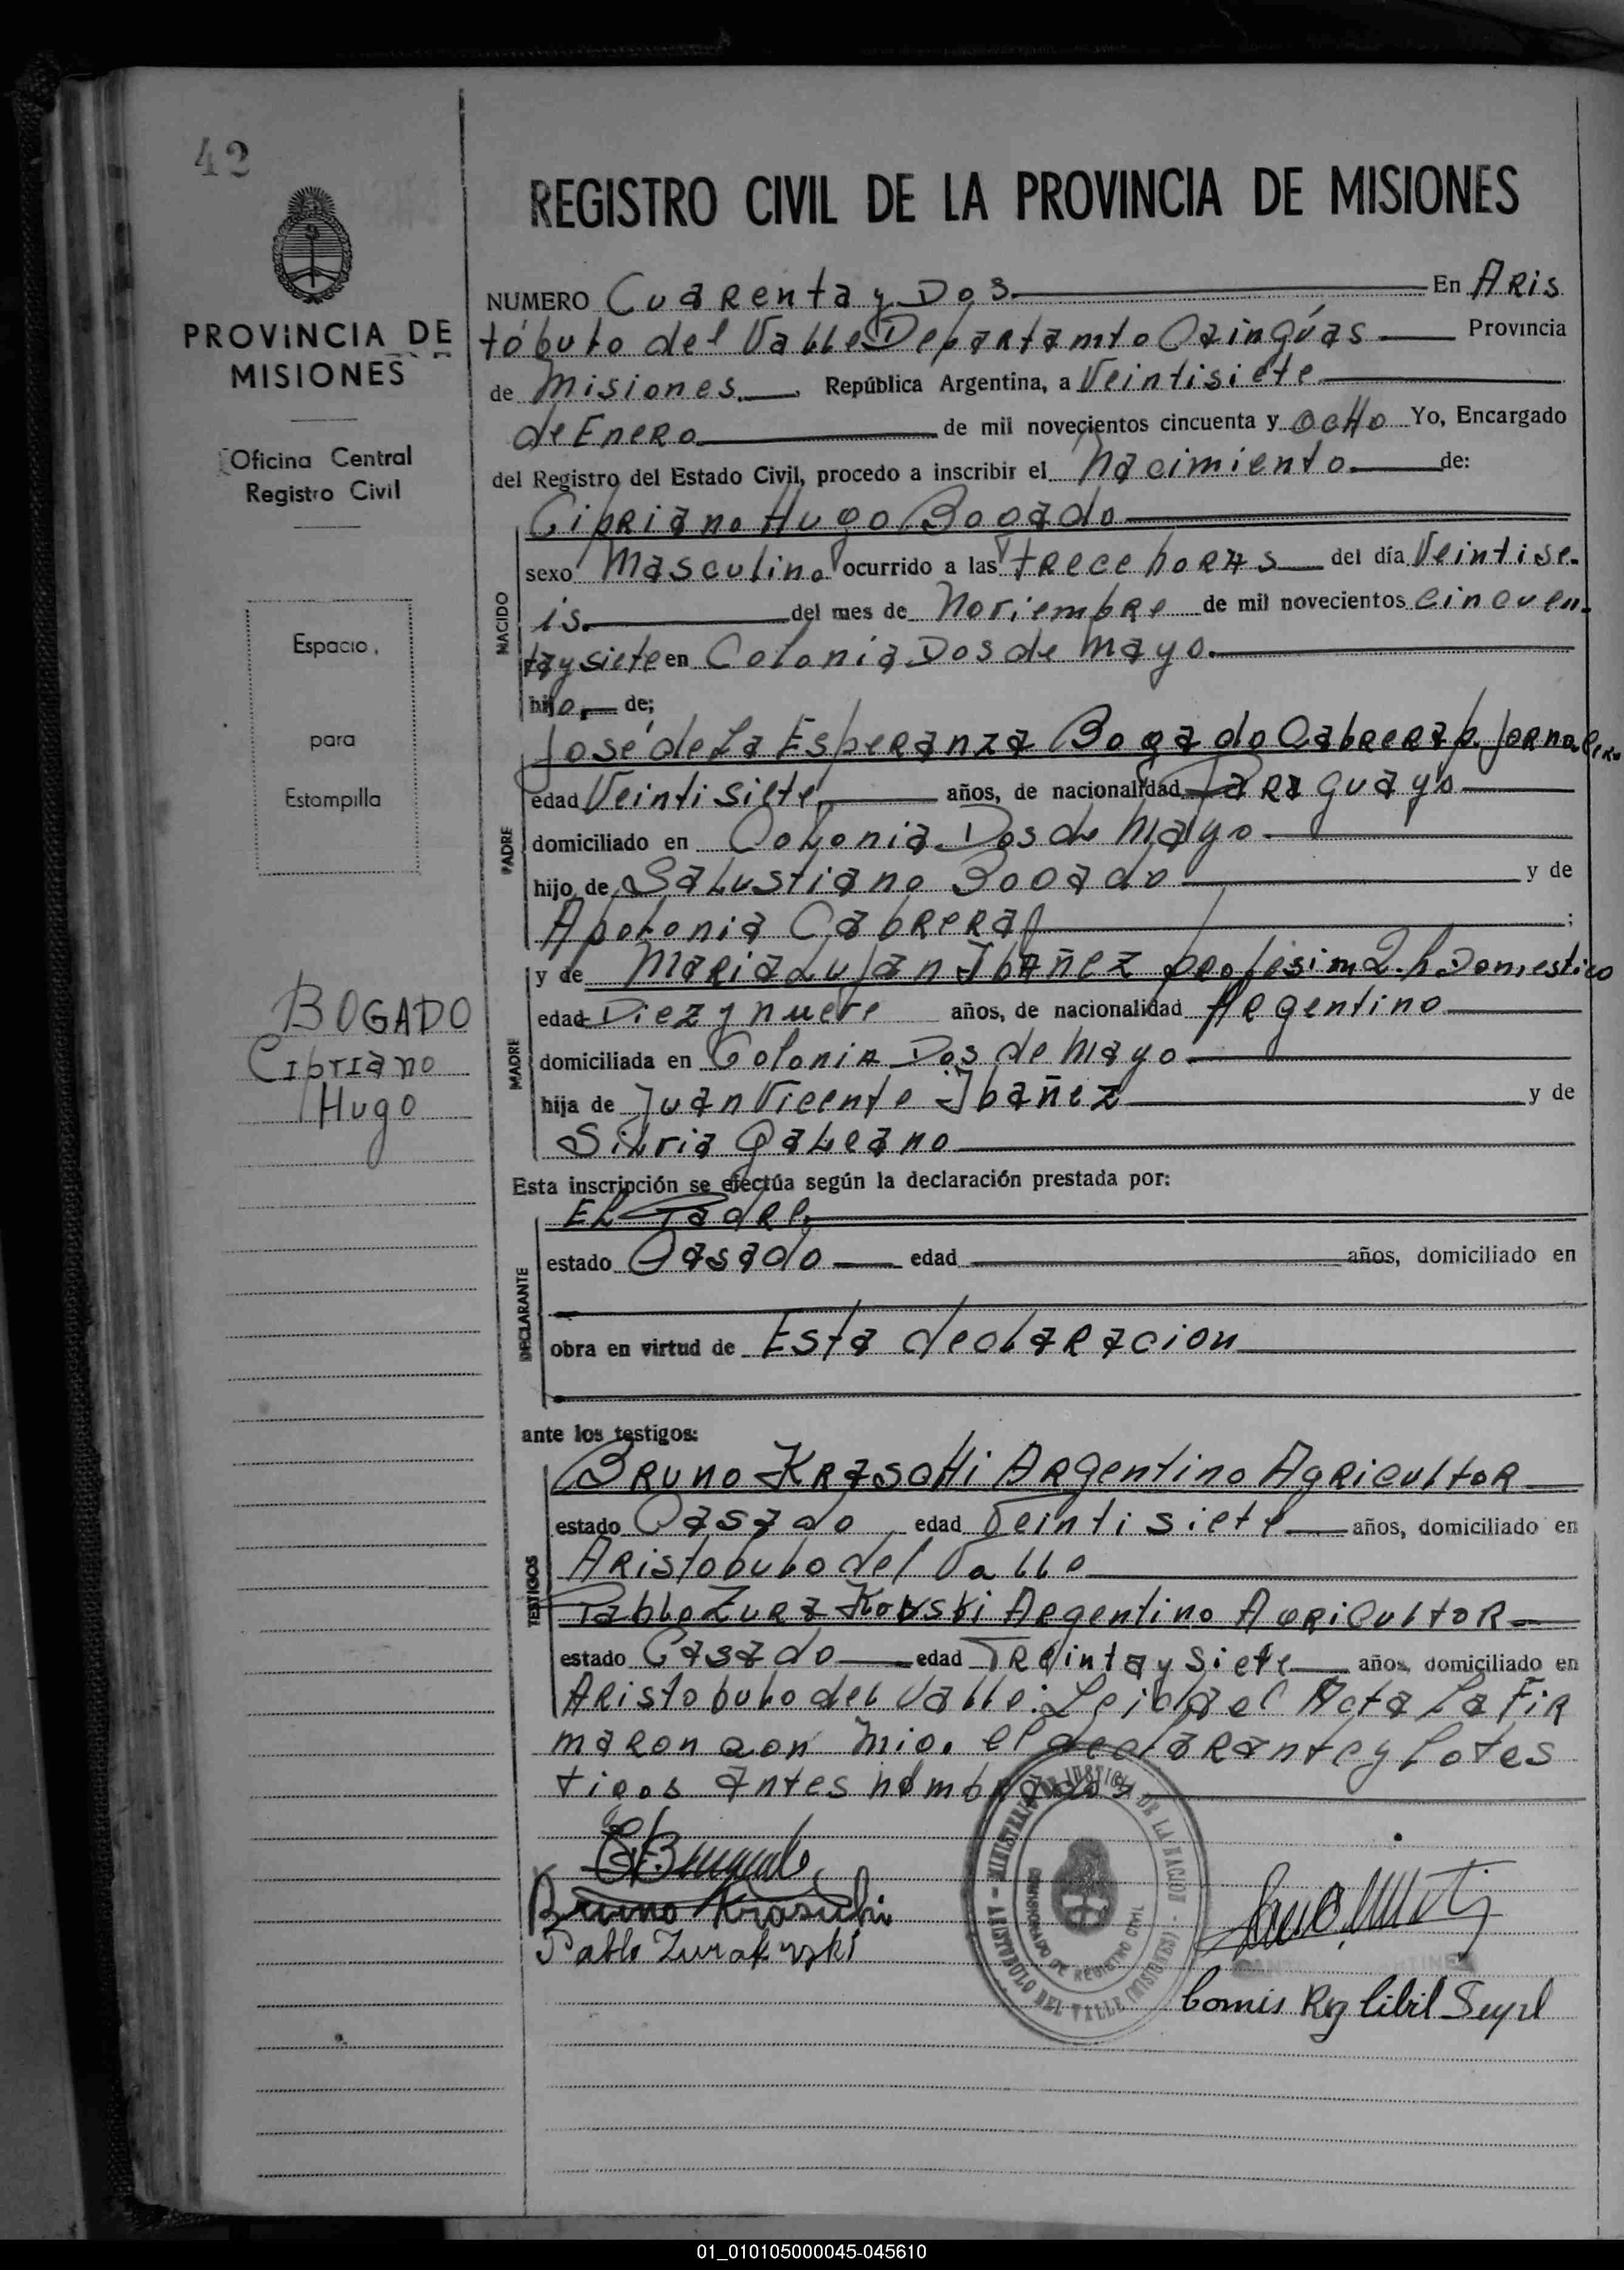 42
PROVINCIA DE
MISIONES
Oficina Central
Registro Civil
Espacio
para
Estampilla
BOGADO
Cipriano
Hugo
REGISTRO CIVIL DE LA PROVINCIA DE MISIONES
NUMERO Cuarenta y Dos En Aris
tóbulo del Valle Departamto Cainguas Provincia
de Misiones República Argentina, a Veintisiete
de Enero de mil novecientos cincuenta y ocHo Yo, Encargado
del Registro del Estado Civil, procedo a inscribir el Nacimiento de:
Cipriano Hugo Bogado
NACIDO
sexo Masculino ocurrido a las trece horas del día Veintise-
is. del mes de Noviembre de mil novecientos cincuen-
ta y siete en Colonia Dos de Mayo.
hijo de;
PADRE
José de La Esperanza Bogado Cabrera p. Jornalero
edad Veintisiete años, de nacionalidad Paraguayo
domiciliado en Colonia Dos de Mayo
hijo de Salustiano Bogado y de
Apolonia Cabrera ;
MADRE
y de Maria Lujan Ibañez profesim Q. h Domestico
edad Diez y nueve años, de nacionalidad Argentino
domiciliada en Colonia Dos de Mayo
hija de Juan Vicente Ibañez y de
Silvia Galeano
Esta inscripción se efectúa según la declaración prestada por:
DECLARANTE
El Padre
estado Casado edad años, domiciliado en
obra en virtud de Esta declaracion
ante los testigos:
TESTIGOS
Bruno Krasotti Argentino Agricultor
estado Casado edad Veintisiete años, domiciliado en
Aristobulo del Valle
Pablo Zurakowski Argentino Agricultor
estado Casado edad Treinta y Siete años, domiciliado en
Aristobulo del Valle: Leida el Acta La Fir
maron con migo. el declarante y Lotes
tigos antes nombrados
Pablo Zurakowski
MINISTERIO DE JUSTICIA DE LA NACION - ARISTOBULO DEL VALLE (MISIONES)
ENCARGADO DE REGISTRO CIVIL
01_010105000045-045610